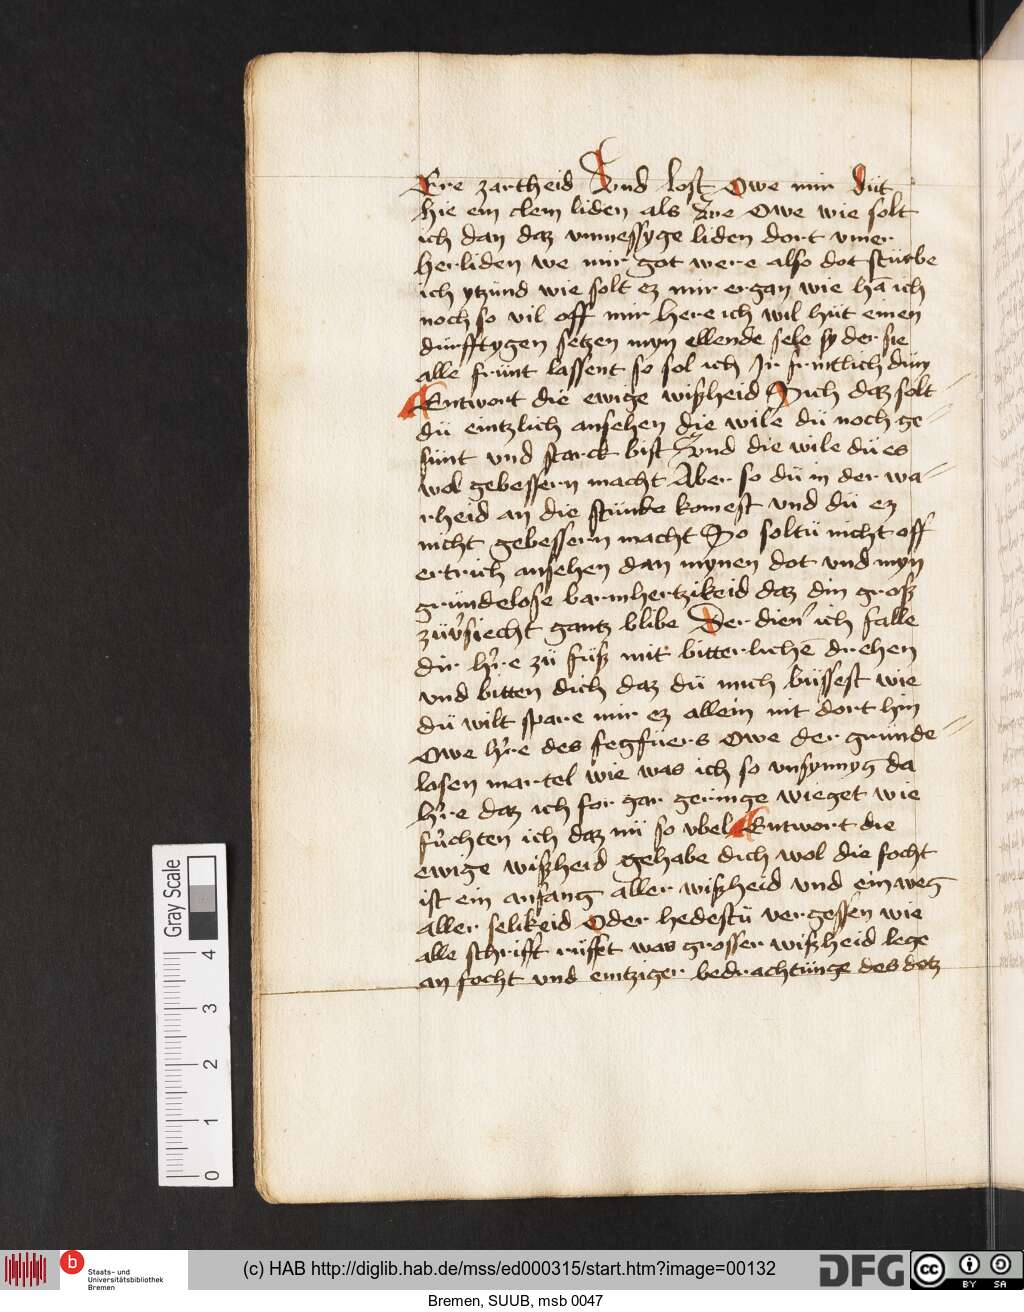 Ere zartheid Vnd lost Owe mir düt
hie ein clein liden als we Owe wie solt
ich dan daz vnmessyge liden dort ymer
herliden we mir got were also dot stürbe
ich ytzünd wie solt ez mir ergan wie hā ich
noch so vil off mir here ich wil hüt einen
dürfftygen setzen myn ellende sele sy der sie
alle frünt lassent so sol ich Ir fruntlich dün
Entwort die ewige wißheid Dich daz solt
dü eintzlich ansehen die wile dü noch ge-
sünt vnd starck bist Vnd die wile dü es
wol gebessern macht Aber so dü in der wa-
rheid an die stünde komest vnd dü ez
nicht gebessern macht So soltü nicht off
ertrich ansehen dan mynen dot vnd myn
gründelose barmhertzikeid daz din groß
züv̉siecht gantz blibe Der dien̉ ich falle
dir hr̉e zü füß mit bitterlichē drehen
vnd bitten dich daz dü mich büssest wie
dü wilt spare mir ez allein nit dort hin
Owe hr̉e des fegfüers Owe der gründe-
losen martel wie was ich so vnsynnyg da
hr̉e daz ich for gar geringe wieget wie
fu̓chten ich daz nü so vbel Entwort die
ewige wißheid gehabe dich wol die focht
ist ein anfang aller wißheid vnd ein weg
aller selikeid Oder hedestü vergessen wie
alle schrifft rüffet was grosser wißheid lege
an focht vnd eintziger bedrachtünge des dotz
Gray Scale
4
3
2
1
0
b
Staats- und
Universitätsbibliothek
Bremen
(c) HAB http://diglib.hab.de/mss/ed000315/start.htm?image=00132
DFG
cc
BY SA
Bremen, SUUB, msb 0047